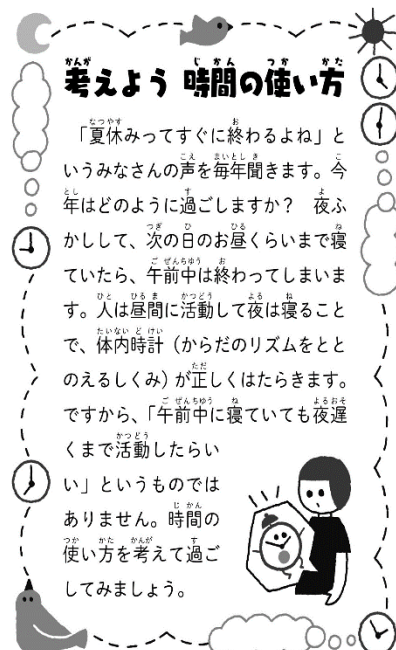 考えよう 時間の使い方
「夏休みってすぐに終わるよね」と
いうみなさんの声を毎年聞きます。今
年はどのように過ごしますか？ 夜ふ
かしして、次の日のお昼くらいまで寝
ていたら、午前中は終わってしまいま
す。人は昼間に活動して夜は寝ること
で、体内時計（からだのリズムをとと
のえるしくみ）が正しくはたらきます。
ですから、「午前中に寝ていても夜遅
くまで活動したらい
い」というものでは
ありません。時間の
使い方を考えて過ご
してみましょう。